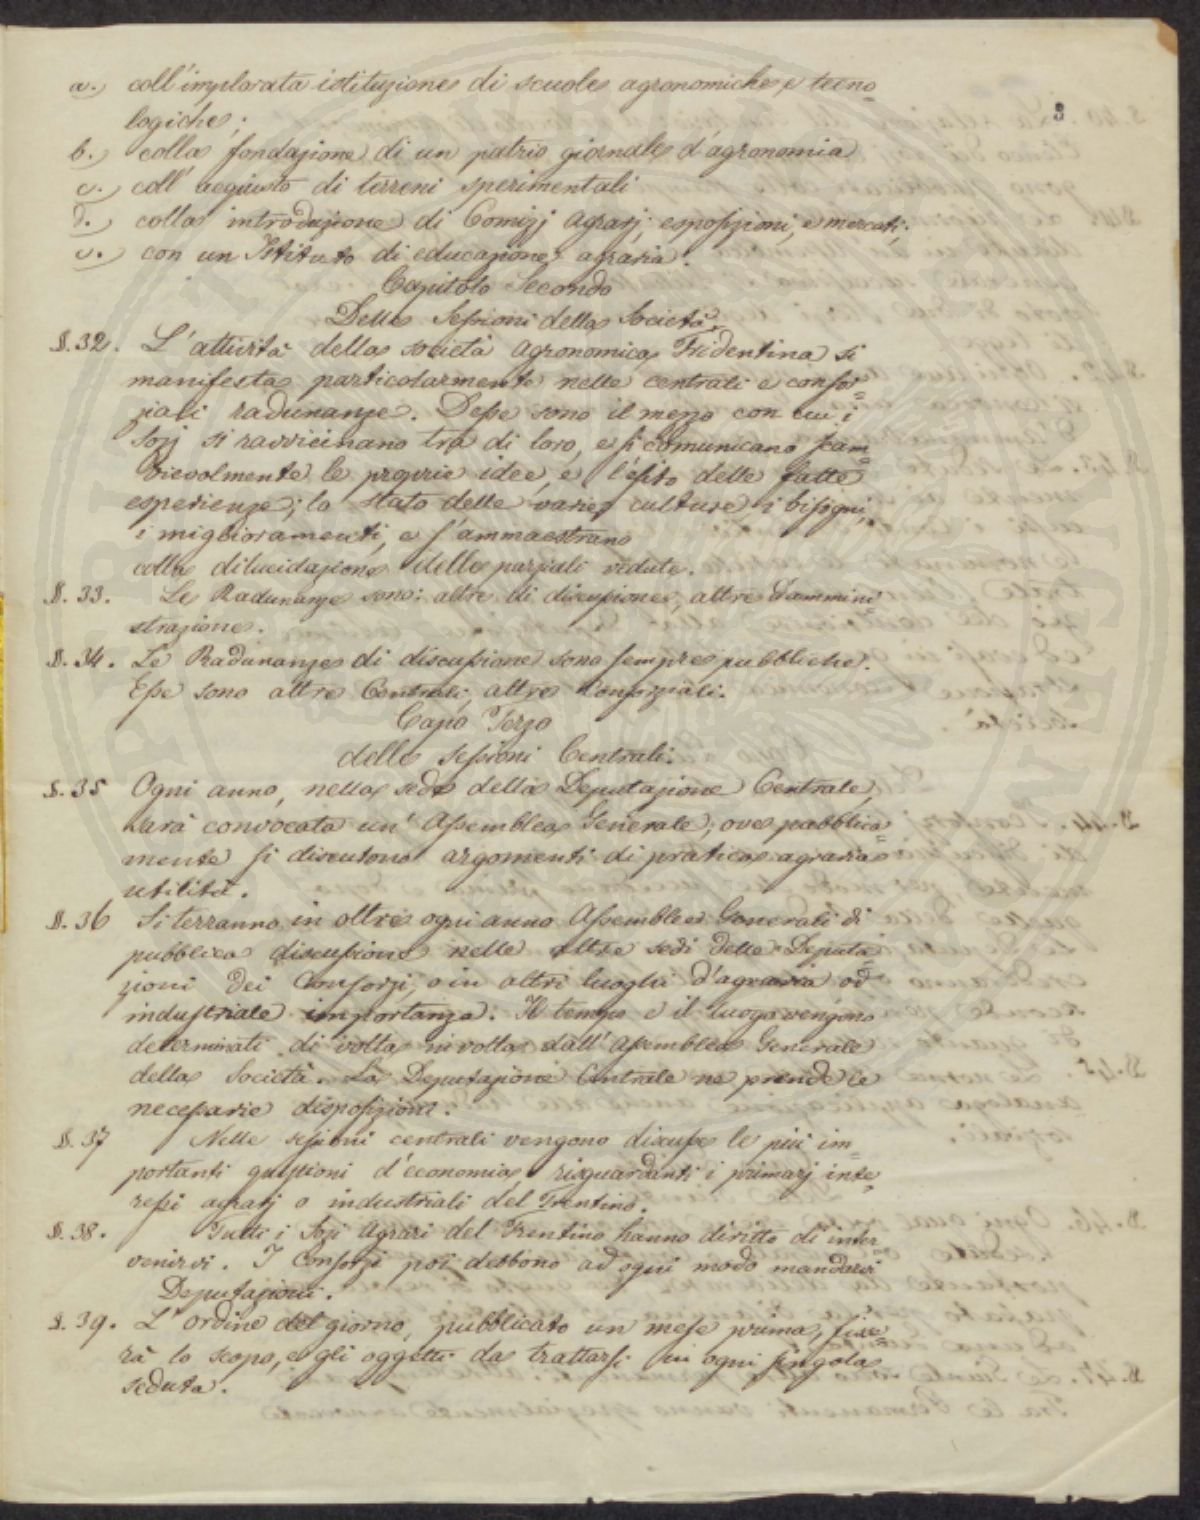 3
a.) coll'implorata istituzione di scuole agronomiche e tecno=
logiche;
b.) colla fondazione di un patrio giornale d'agronomia
c.) coll' acquisto di terreni sperimentali
d.) colla introduzione di Comizj agrarj, esposizioni, e mercati;
e.) con un Istituto di educazione agraria.
Capitolo Secondo
Delle Sessioni della Società.
§. 32. L'attività della società agronomica Tridentina si
manifesta particolarmente nelle centrali e consor=
ziali radunanze. Desse sono il mezzo con cui i
Sozj si ravvicinano tra di loro, e si comunicano scam=
bievolmente le proprie idee, e l'esito delle fatte
esperienze; lo stato delle varie culture i bisogni,
i miglioramenti, e s'ammaestrano
colla dilucidazione delle parziali vedute.
§. 33. Le Radunanze sono: altre di discussione, altre d'ammini=
strazione.
§. 34. Le Radunanze di discussione sono sempre pubbliche.
Esse sono altre Centrali, altre Consorziali.
Capo Terzo
delle sessioni Centrali.
§. 35 Ogni anno, nella sede della Deputazione Centrale,
sarà convocata un' Assemblea Generale, ove pubblica=
mente si discutono argomenti di pratica agraria
utilità.
§. 36 Si terranno in oltre ogni anno Assemblee Generali di
pubblica discussione nelle altre sedi delle Deputa=
zioni dei Consorzj, o in altri luoghi d'agraria od
industriale importanza. Il tempo e il luogo vengono
determinati di volta in volta dall' Assemblea Generale
della Società. La Deputazione Centrale ne prende le
necessarie disposizioni.
§. 37 Nelle sessioni centrali vengono discusse le più im=
portanti quistioni d'economia, risguardanti i primarj inte=
ressi agrarj o industriali del Trentino.
§. 38. Tutti i Sozj Agrari del Trentino hanno diritto di inter
venirvi. I Consorzj poi debbono ad ogni modo mandarvi
Deputazioni.
§. 39. L' ordine del giorno, pubblicato un mese prima, fisse=
rà lo scopo, e gli oggetti da trattarsi in ogni singola
seduta.